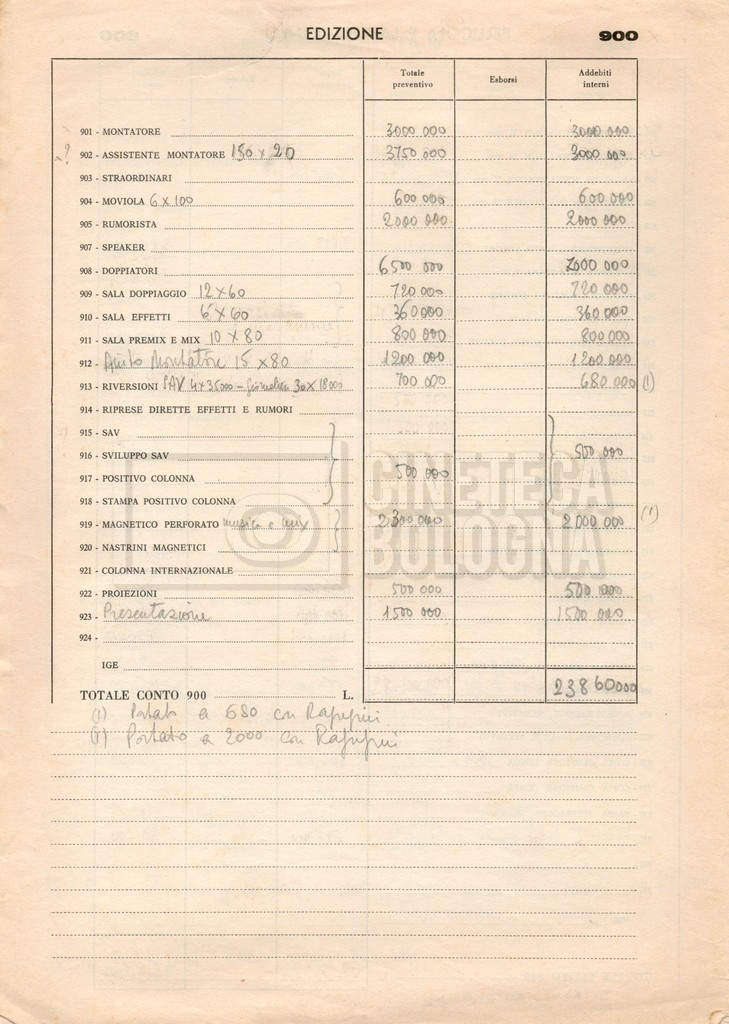 EDIZIONE 900
Totale preventivo Esborsi Addebiti interni
901 - MONTATORE 3000 000 3000 000
? 902 - ASSISTENTE MONTATORE 150 x 20 3750 000 3000 000
903 - STRAORDINARI
904 - MOVIOLA 6 x 100 600 000 600 000
905 - RUMORISTA 2000 000 2000 000
907 - SPEAKER
908 - DOPPIATORI 6500 000 7000 000
909 - SALA DOPPIAGGIO 12 x 60 720 000 720 000
910 - SALA EFFETTI 6 x 60 360000 360 000
911 - SALA PREMIX E MIX 10 x 80 800 000 800 000
912 - Aiuto Montatore 15 x 80 1200 000 1200 000
913 - RIVERSIONI SAV 4x35000 - 30x18000 700 000 680 000 (I)
914 - RIPRESE DIRETTE EFFETTI E RUMORI
915 - SAV
916 - SVILUPPO SAV 500 000
917 - POSITIVO COLONNA 500 000
918 - STAMPA POSITIVO COLONNA
919 - MAGNETICO PERFORATO musica e mix 2300 000 2000 000 (II)
920 - NASTRINI MAGNETICI
921 - COLONNA INTERNAZIONALE
922 - PROIEZIONI 500 000 500 000
923 - Presentazione 1500 000 1500 000
924 -
IGE
TOTALE CONTO 900 L. 23860000
(I) Portato a 680 con
(II) Portato a 2000 con
CINETECA
BOLOGNA